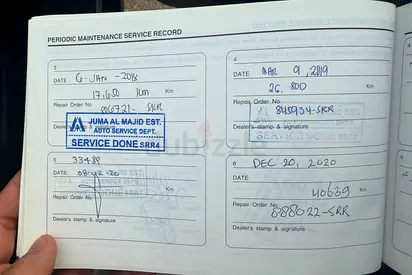 PERIODIC MAINTENANCE SERVICE RECORD
3
DATE 6-JAN-2018
17,650 Km
Repair Order No 806721-SRR
Dealer's stamp & signature
JUMA AL MAJID EST.
AUTO SERVICE DEPT.
SERVICE DONE SRR4
4
DATE MAR 9, 2019
26,800
Km
Repair Order No.
845934-SRR
Dealer's stamp & signature
5
33489
DATE 08-02-20
Km
Repair Order No
Dealer's stamp & signature
6
DATE DEC 20, 2020
40639
Km
Repair Order No.
888022-SRR
Dealer's stamp & signature
dubizzle